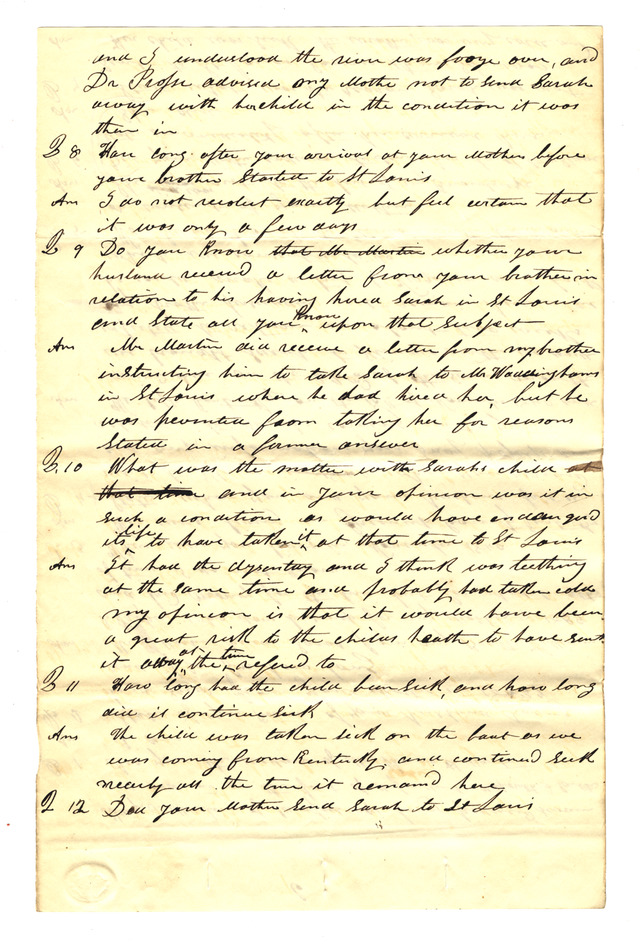 and I understood the river was froze over, and
Dr Prosse advised my Mother not to send Sarah
away with her child in the condition it was
then in
Q 8 How long after your arrival at your Mothers before
your brother started to St Louis
Ans I do not recolect exactly but feel certain that
it was only a few days
Q 9 Do you know that Mr Martin whether your
husband receivd a letter from your brother in
relation to his having hired Sarah in St Louis
and State all you know upon that Subject
Ans Mr Martin did receive a letter from my brother
instructing him to take Sarah to Mr Waddinghams
in St Louis where he had hired her, but he
was prevented from taking her for reasons
stated in a former answer
Q. 10 What was the matter with Sarahs child at
that time and in your opinion was it in
such a condition as would have endangerd
its life to have taken it at that time to St Louis
Ans It had the dysentary and I think was teething
at the same time and probably had taken cold
my opinion is that it would have been
a great risk to the childs health to have sent
it away at the time refered to
Q 11 How long had the child been sick, and how long
did it continue sick
Ans The child was taken sick on the boat as we
was coming from Kentucky, and continued sick
nearly all the time it remaind here
Q 12 Did your Mother send Sarah to St Louis